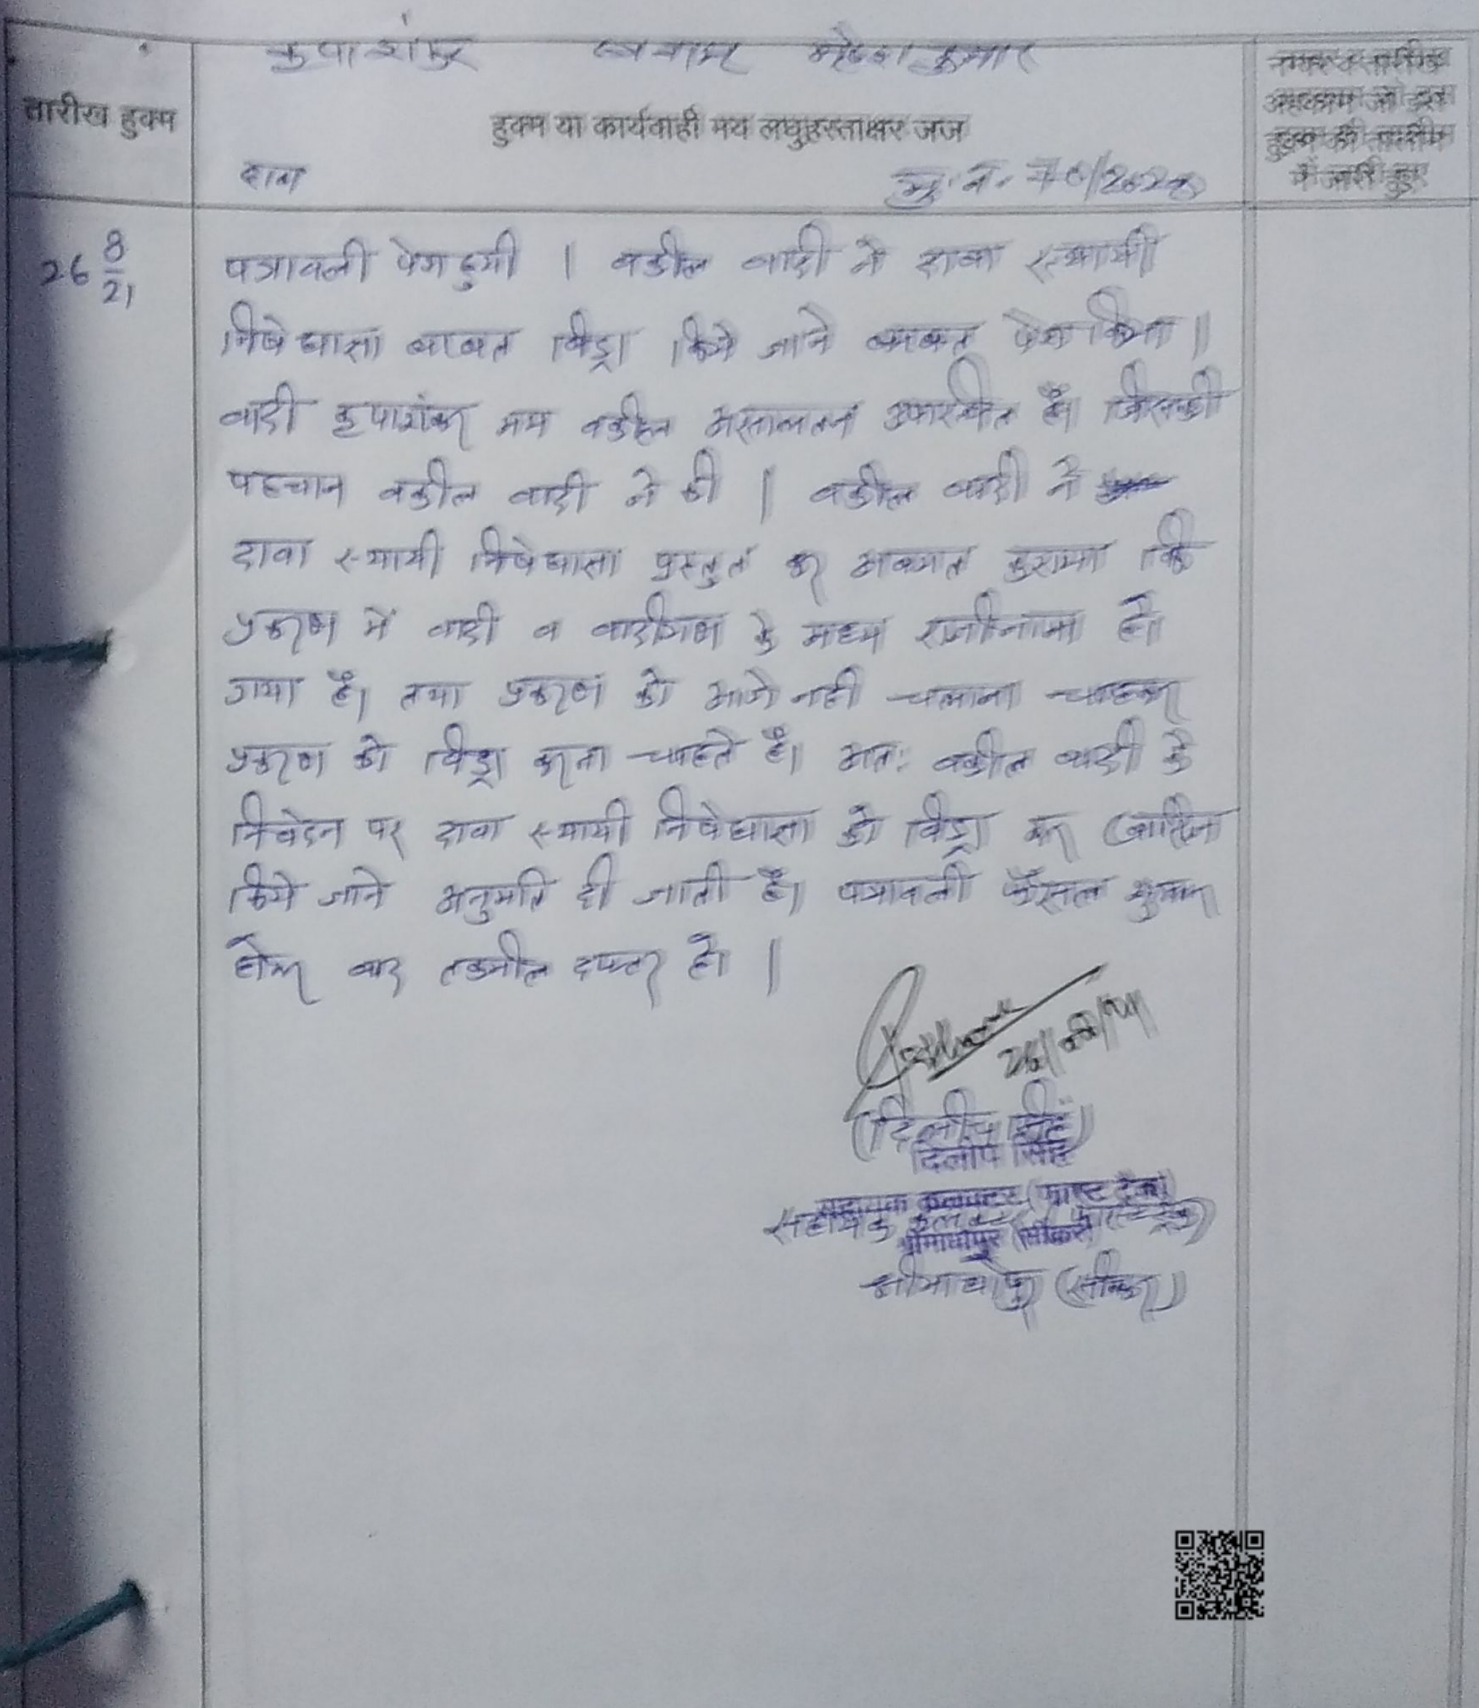 कृपाशंकर बनाम महेश कुमार
तारीख हुक्म
हुक्म या कार्यवाही मय लघुहस्ताक्षर जज
नम्बर व तारीख
अहकाम जो इस
हुक्म की तामील
में जारी हुए
दावा मु.न. 70/2020
26 8/21
पत्रावली पेश हुयी । वकील वादी ने दावा स्थायी
निषेधाज्ञा बाबत विड्रा किये जाने बाबत पेश किया ।
वादी कृपाशंकर मय वकील असालतन उपस्थित है। जिसकी
पहचान वकील वादी ने की । वकील वादी ने
दावा स्थायी निषेधाज्ञा प्रस्तुत कर अवगत कराया कि
प्रकरण में वादी व वादीगण के मध्य राजीनामा हो
गया है। तथा प्रकरण को आगे नही चलाना चाहकर
प्रकरण को विड्रा करना चाहते है। अतः वकील वादी के
निवेदन पर दावा स्थायी निषेधाज्ञा को विड्रा कर खारिज
किये जाने अनुमति दी जाती है। पत्रावली फैसल शुमार
होकर बाद तकमील दफ्तर हो ।
26/08/21
(दिलीप सिंह)
दिलीप सिंह
सहायक कलक्टर (फास्ट ट्रेक)
सहायक कलक्टर (फास्ट ट्रेक)
श्रीमाधोपुर (सीकर)
श्रीमाधोपुर (सीकर)